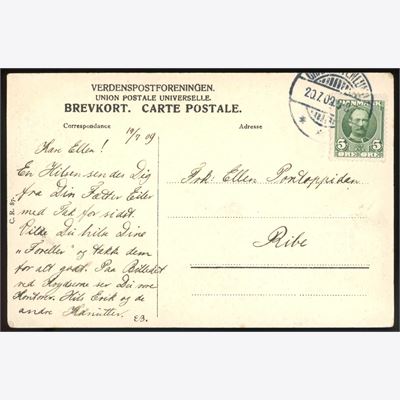 VERDENSPOSTFORENINGEN.
UNION POSTALE UNIVERSELLE.
BREVKORT. CARTE POSTALE.
Correspondance
Adresse
19/7 09
20.7.09
DANMARK
5 5
ØRE ØRE
Kære Ellen!
En Hilsen sendes Dig
fra Din Fætter Eiler
med Tak for sidst.
Vilde Du hilse Dine
„Foreller" og takke dem
for alt godt. Paa Billedet
ved Krydserne ser Du
Kontorer. Hils Erik og de
andre
EB.
C. R. Fr.
Frk: Ellen Pontoppidan
Ribe